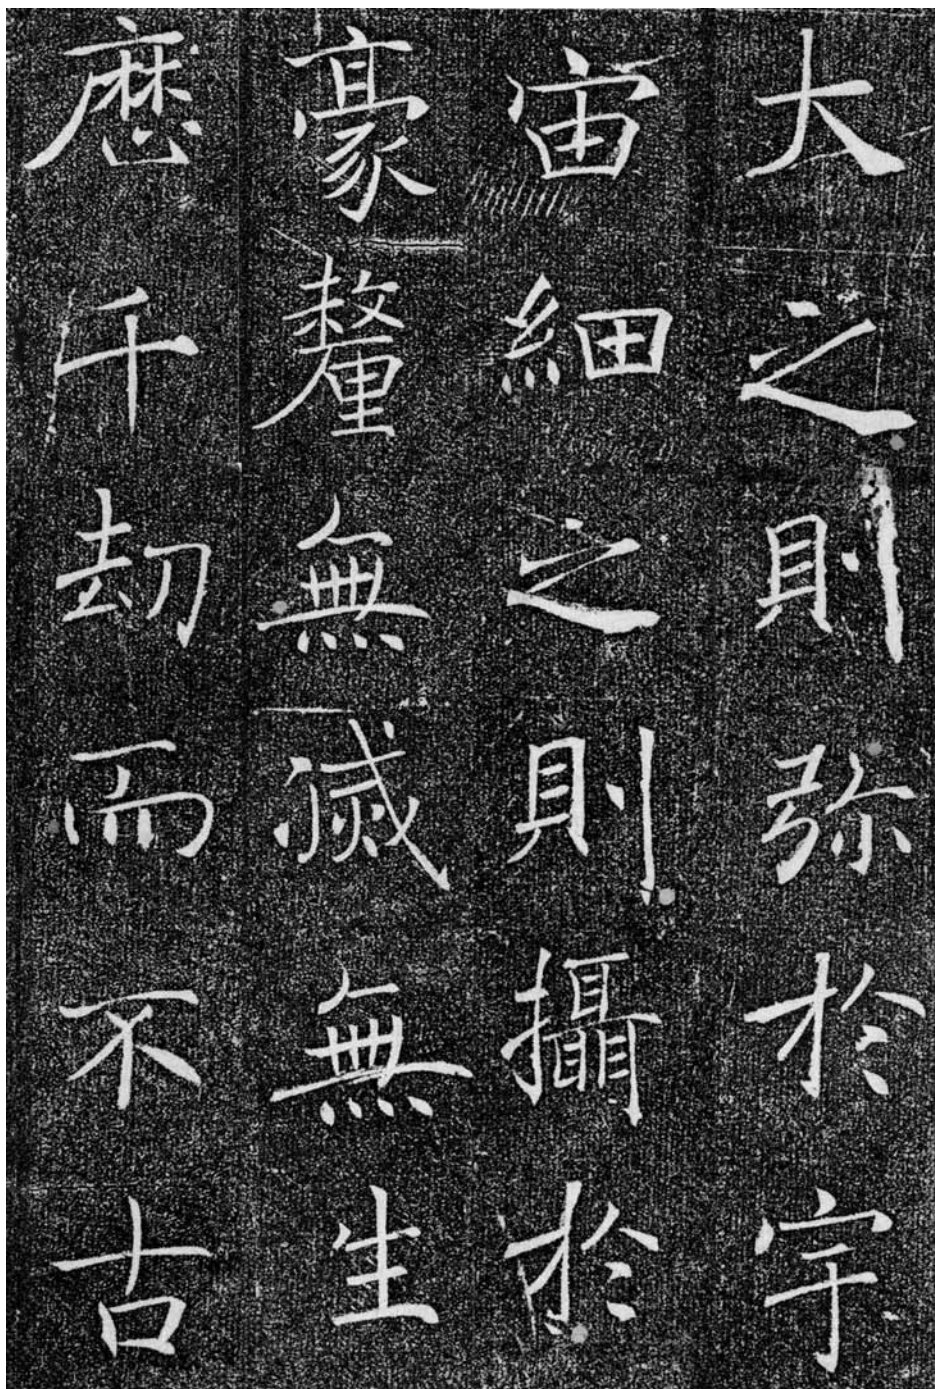 大之則弥於宇
宙細之則攝於
豪釐無滅無生
歷千劫而不古